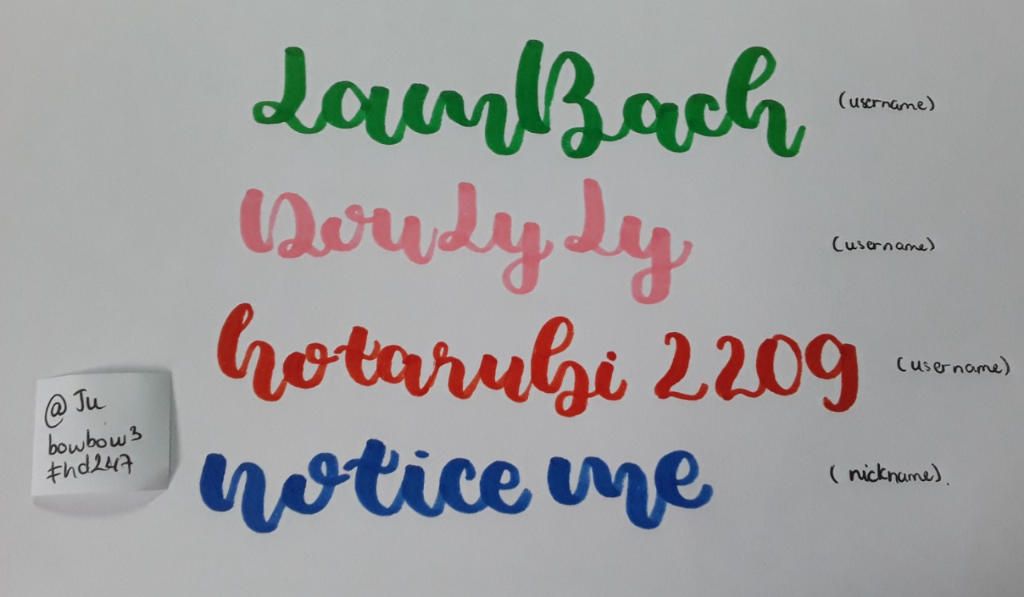 LamBach (username)
DoruLy Ly (username)
hotarubi 2209 (username)
notice me (nickname).
@ Ju
bowbow3
#hd247